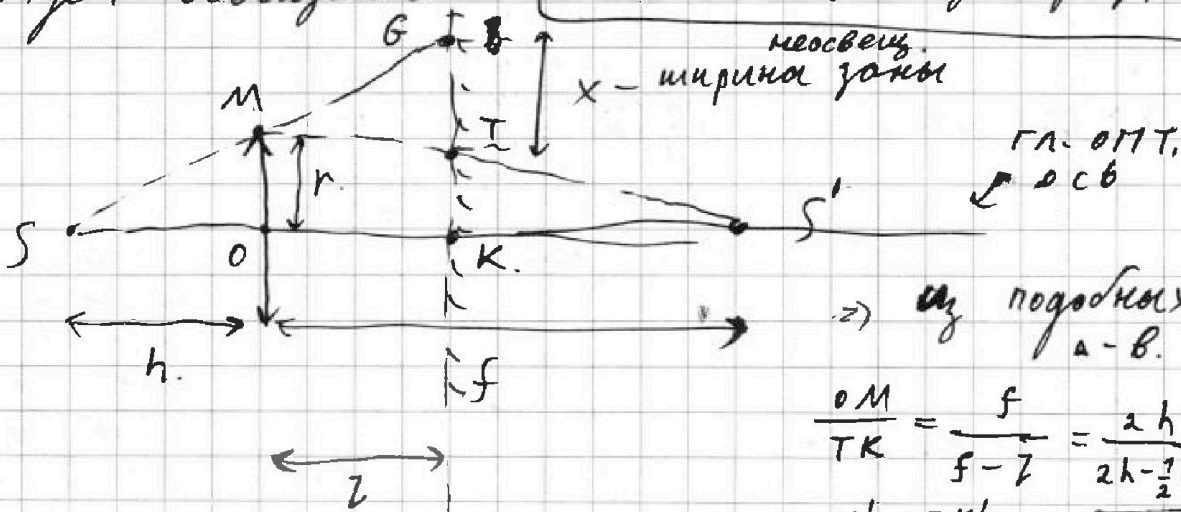 G
неосвещ.
x – ширина зоны
M
T
r.
гл. опт.
ось
S
O
K.
S'
h.
f
l
=) из подобных
Δ-в.
OM/TK = f/(f-l) = 2h/(2h-1/2